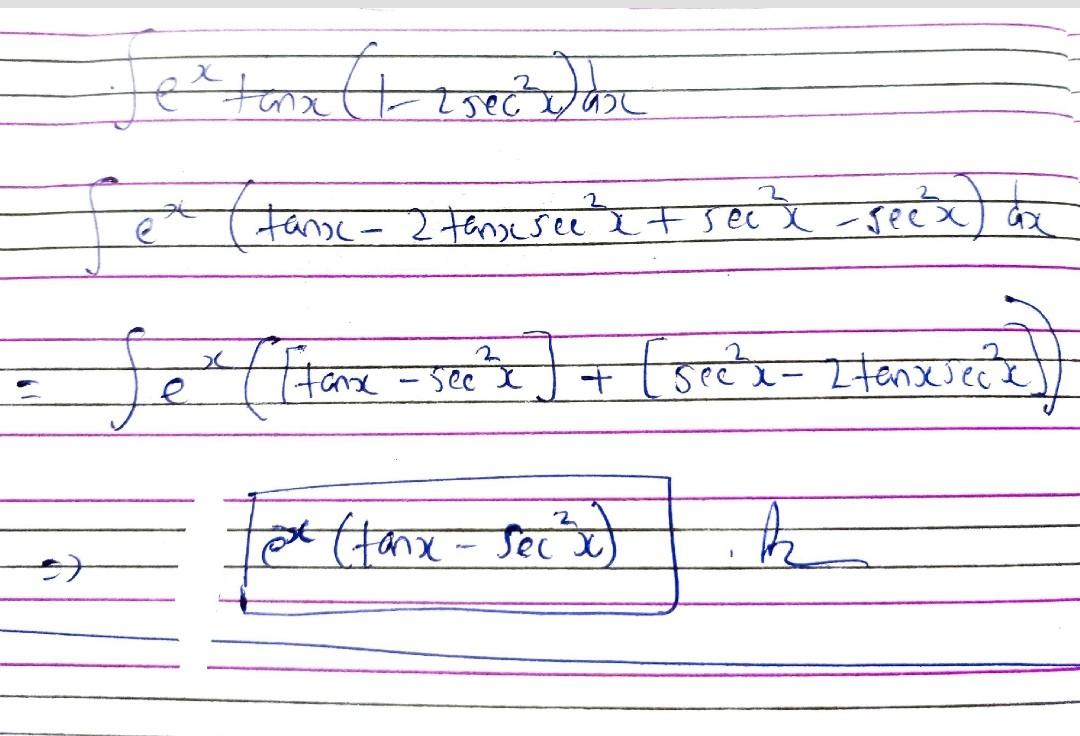 ∫ e^x tanx (1 - 2 sec²x) dx
∫ e^x (tanx - 2 tanx sec²x + sec²x - sec²x) dx
= ∫ e^x ([tanx - sec²x] + [sec²x - 2 tanx sec²x])
=> e^x (tanx - sec²x)